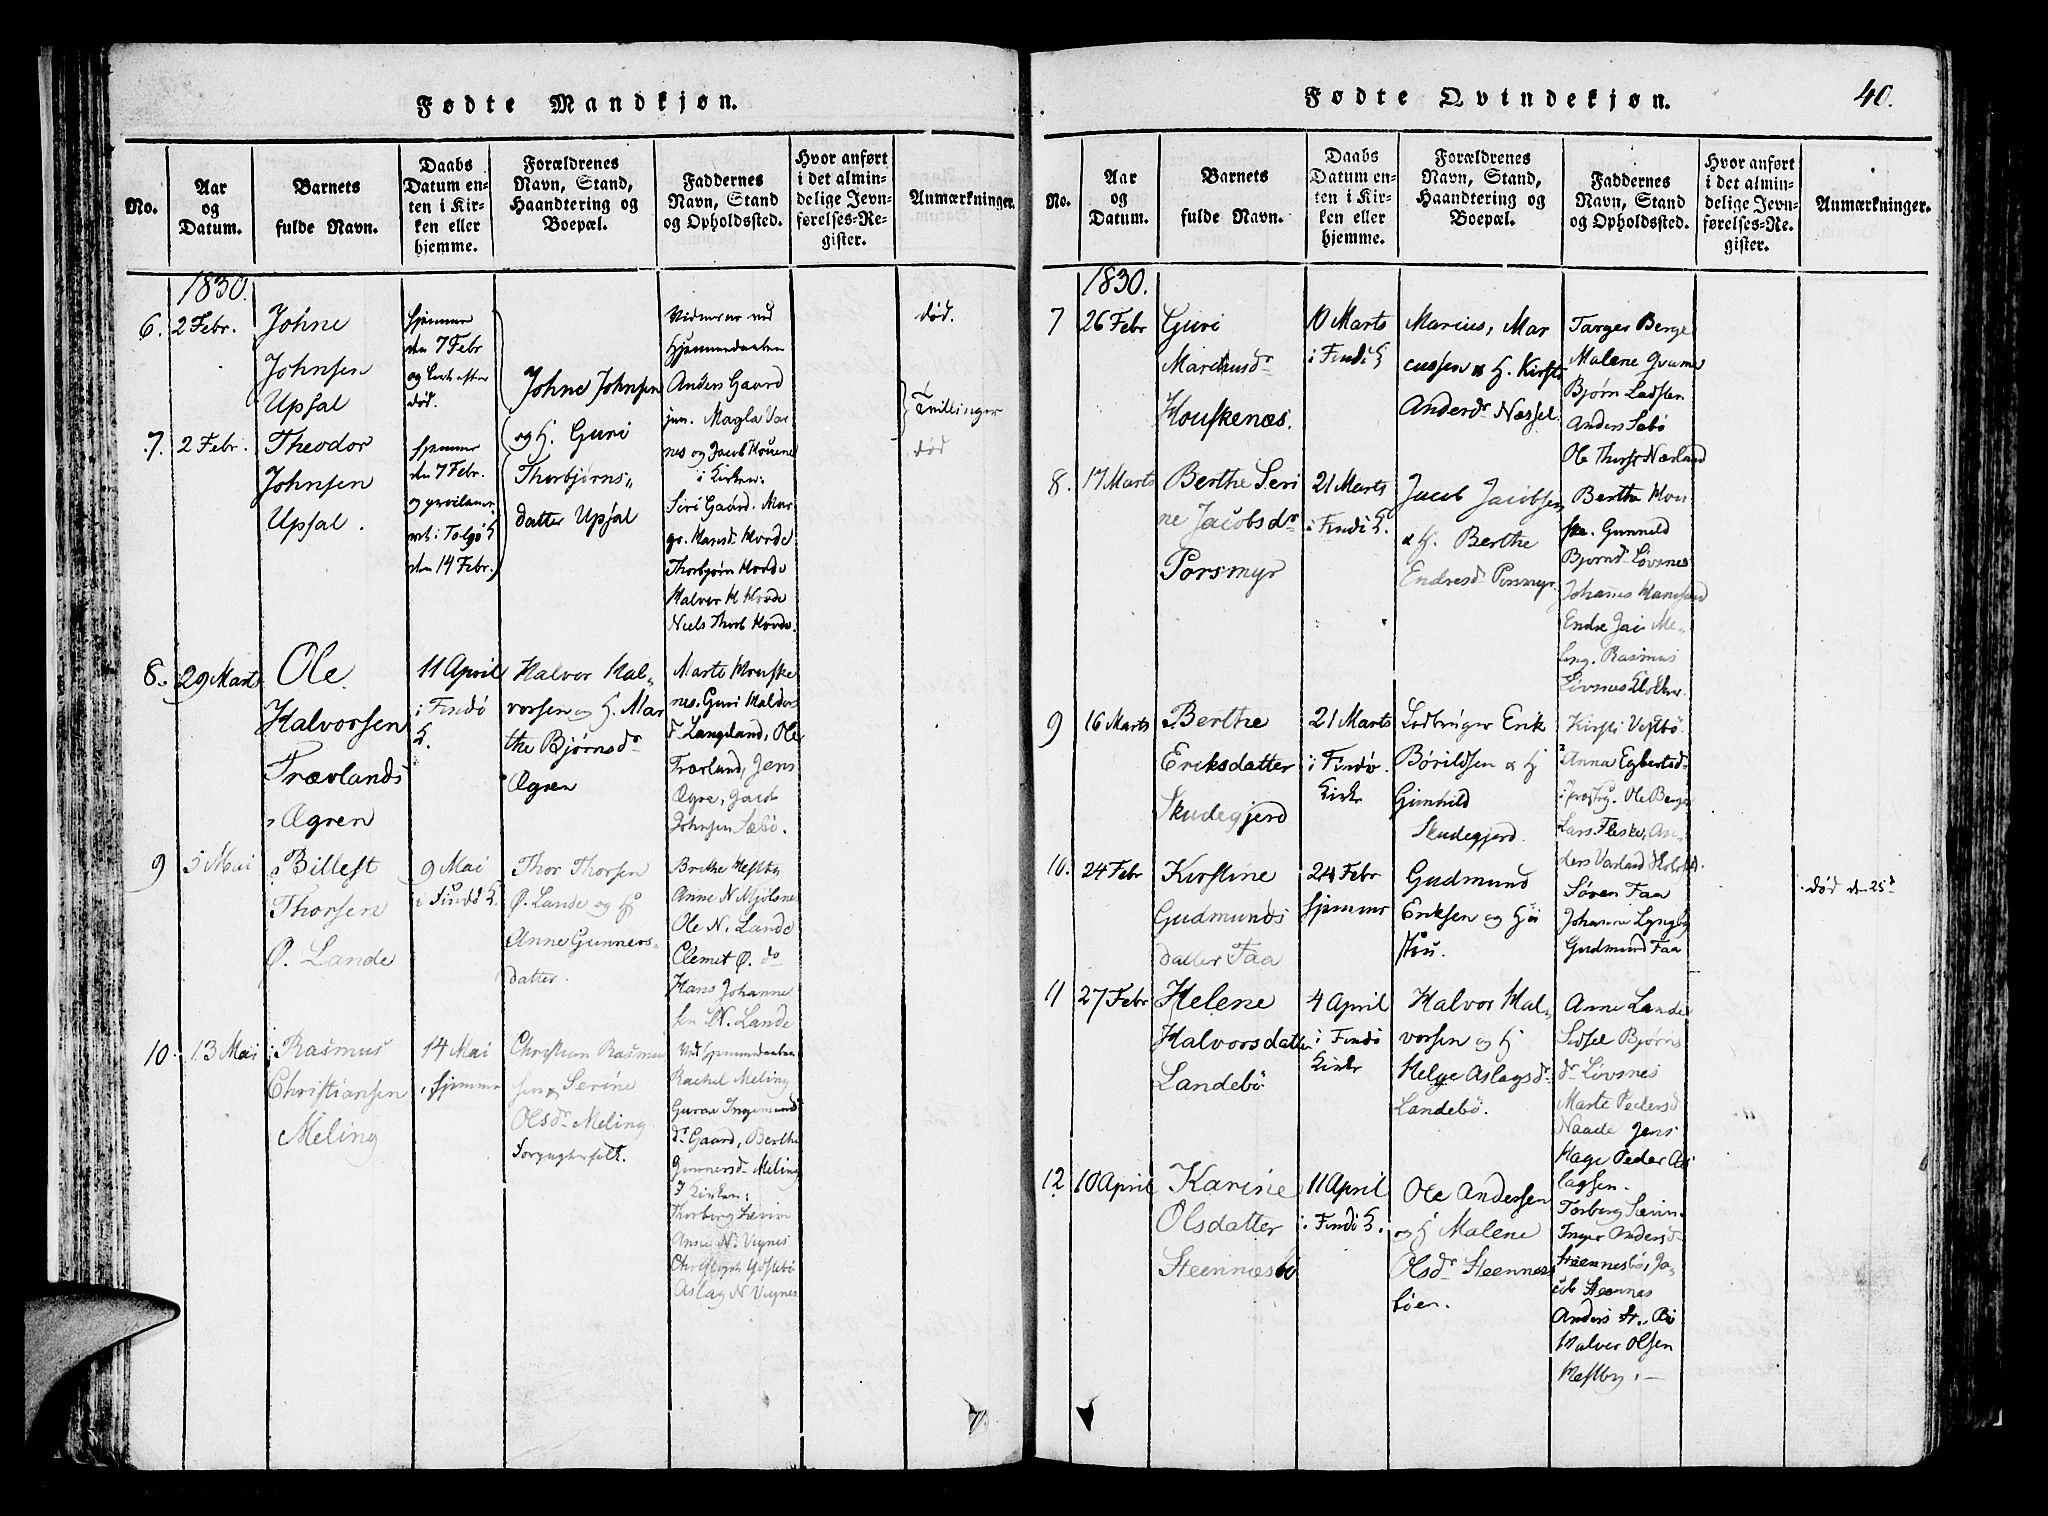 Fødte Mandkjøn.
No.
Aar
og
Datum.
Barnets
fulde Navn.
Daabs
Datum en-
ten i Kir-
ken eller
hjemme.
Forældrenes
Navn, Stand,
Haandtering og
Boepæl.
Faddernes
Navn, Stand
og Opholdssted.
Hvor anført
i det almin-
delige Jevn-
førelses-Re-
gister.
Anmærkninger.
1830.
6.
2 Febr.
Johne
Johnsen
Upsal
hjemme
den 7 Febr
og
død.
Johne Johnsen
og H. Guri
Thorbjørns-
datter Upsal
Vidnerne ved
Hjemmedaaben
Anders Gaard
jun. Magla Var
nes og Jacob
i Kirken:
Siri Gaard. Mar
gr. Hansd. Hovde
Thorbjørn Hovde
Halvor H Hovde
Niels Thorb Hovde.
død.
Tvillinger
7.
2 Febr.
Theodor
Johnsen
Upsal.
hjemme
den 7 Febr.
og
i Talgø K
den 14 Febr.
død
8.
29 Marts
Ole
Halvorsen
Trævlands
Ægren
11 April
i Findø
K.
Halvor Hal-
vorsen og H. Mar
the Bjørnsdr
Ægren
Marte Houske
nes. Guri Haldors
d. Langeland, Ole
Trærland, Jens
Ægre, Jacob
Johnsen Sæbø.
9
5 Mai
Billest
Thorsen
Ø. Lande
9 Mai
i Findø K.
Thor Thorsen
Ø. Lande og H
Anne Gunners-
datter.
Brithe Hestby
Anne N Mjølsnes
Ole N. Lande
Clemet Ø. do
Hans Johanne
sen N. Lande
10.
13 Mai
Rasmus
Christiansen
Meling
14 Mai
hjemme
Christian Rasmu
sen & Serine
Olsdr Meling
Ved hjemmedaaben
Rachel Meling
Guroe Ingemund
dr Gaard, Berthe
Gunnersd. Meling
I Kirken:
Thorberg Sævin
Anne N. Vignes
Christoph
Aslag N Vignes
Fødte Qvindekjøn.
40.
No.
Aar
og
Datum.
Barnets
fulde Navn.
Daabs
Datum en-
ten i Kir-
ken eller
hjemme.
Forældrenes
Navn, Stand,
Haandtering og
Boepæl.
Faddernes
Navn, Stand
og Opholdssted.
Hvor anført
i det almin-
delige Jevn-
førelses-Re-
gister.
Anmærkninger.
1830.
7
26 Febr
Guri
Marcusdr
Houskenæs.
10 Marts
i Findø K
Marcus, Mar
cussen & H. Kirsti
Andersdr Næssel
Targer Berge
Malene Qvame
Bjørn Ladsten
Anders Sæbø
Ole Thorss Nærland
8.
17 Marts
Berthe Seri
ne Jacobsdr
Porsmyr
21 Marts
i Findø K.
Jacob Jacobsen
& H. Berthe
Endresd Porsmyr.
Berthe Hou
ske. Gunneld
Bjørnsd. Løvsnes
Johannes
Endre Jac. Me-
ling. Rasmus
Løvsnes Klokker.
9
16 Marts
Berthe
Eriksdatter
Skudegjerd
21 Marts
i Findø
Kirke
Erik
Børildsen & H
Gunhild
Skudegjerd.
Kirsti Vestbø.
Anna Egbertsd.
Ole Berge
Lars Fleske, An-
ders Varland
10.
24 Febr
Kirstine
Gudmunds
datter Faa
24 Febr
hjemme
Gudmund
Eriksen og Hu
stru.
Søren Faa
Johanne Lyngby
Gudmund Faa
død d. 25d
11
27 Febr
Helene
Halvorsdatter
Landebø
4 April
i Findø
Kirke
Halvor Hal-
vorsen og H
Helge Aslagsdr
Landebø.
Anne Lande
Sidsel Bjørns
dr Løvsnes
Marte Pedersd
Naade Jens
Hage Peder As
lagsen.
12
10 April
Karine
Olsdatter
Steennæsbø
11 April
i Findø K.
Ole Andersen
og H Malene
Olsdr Steennæs
bøen.
Torberg Sævin.
Inger Andersd
Steennesbø, Ja-
cob Steennes
Anders St. Bø
Halvor Olsen
Hestby.